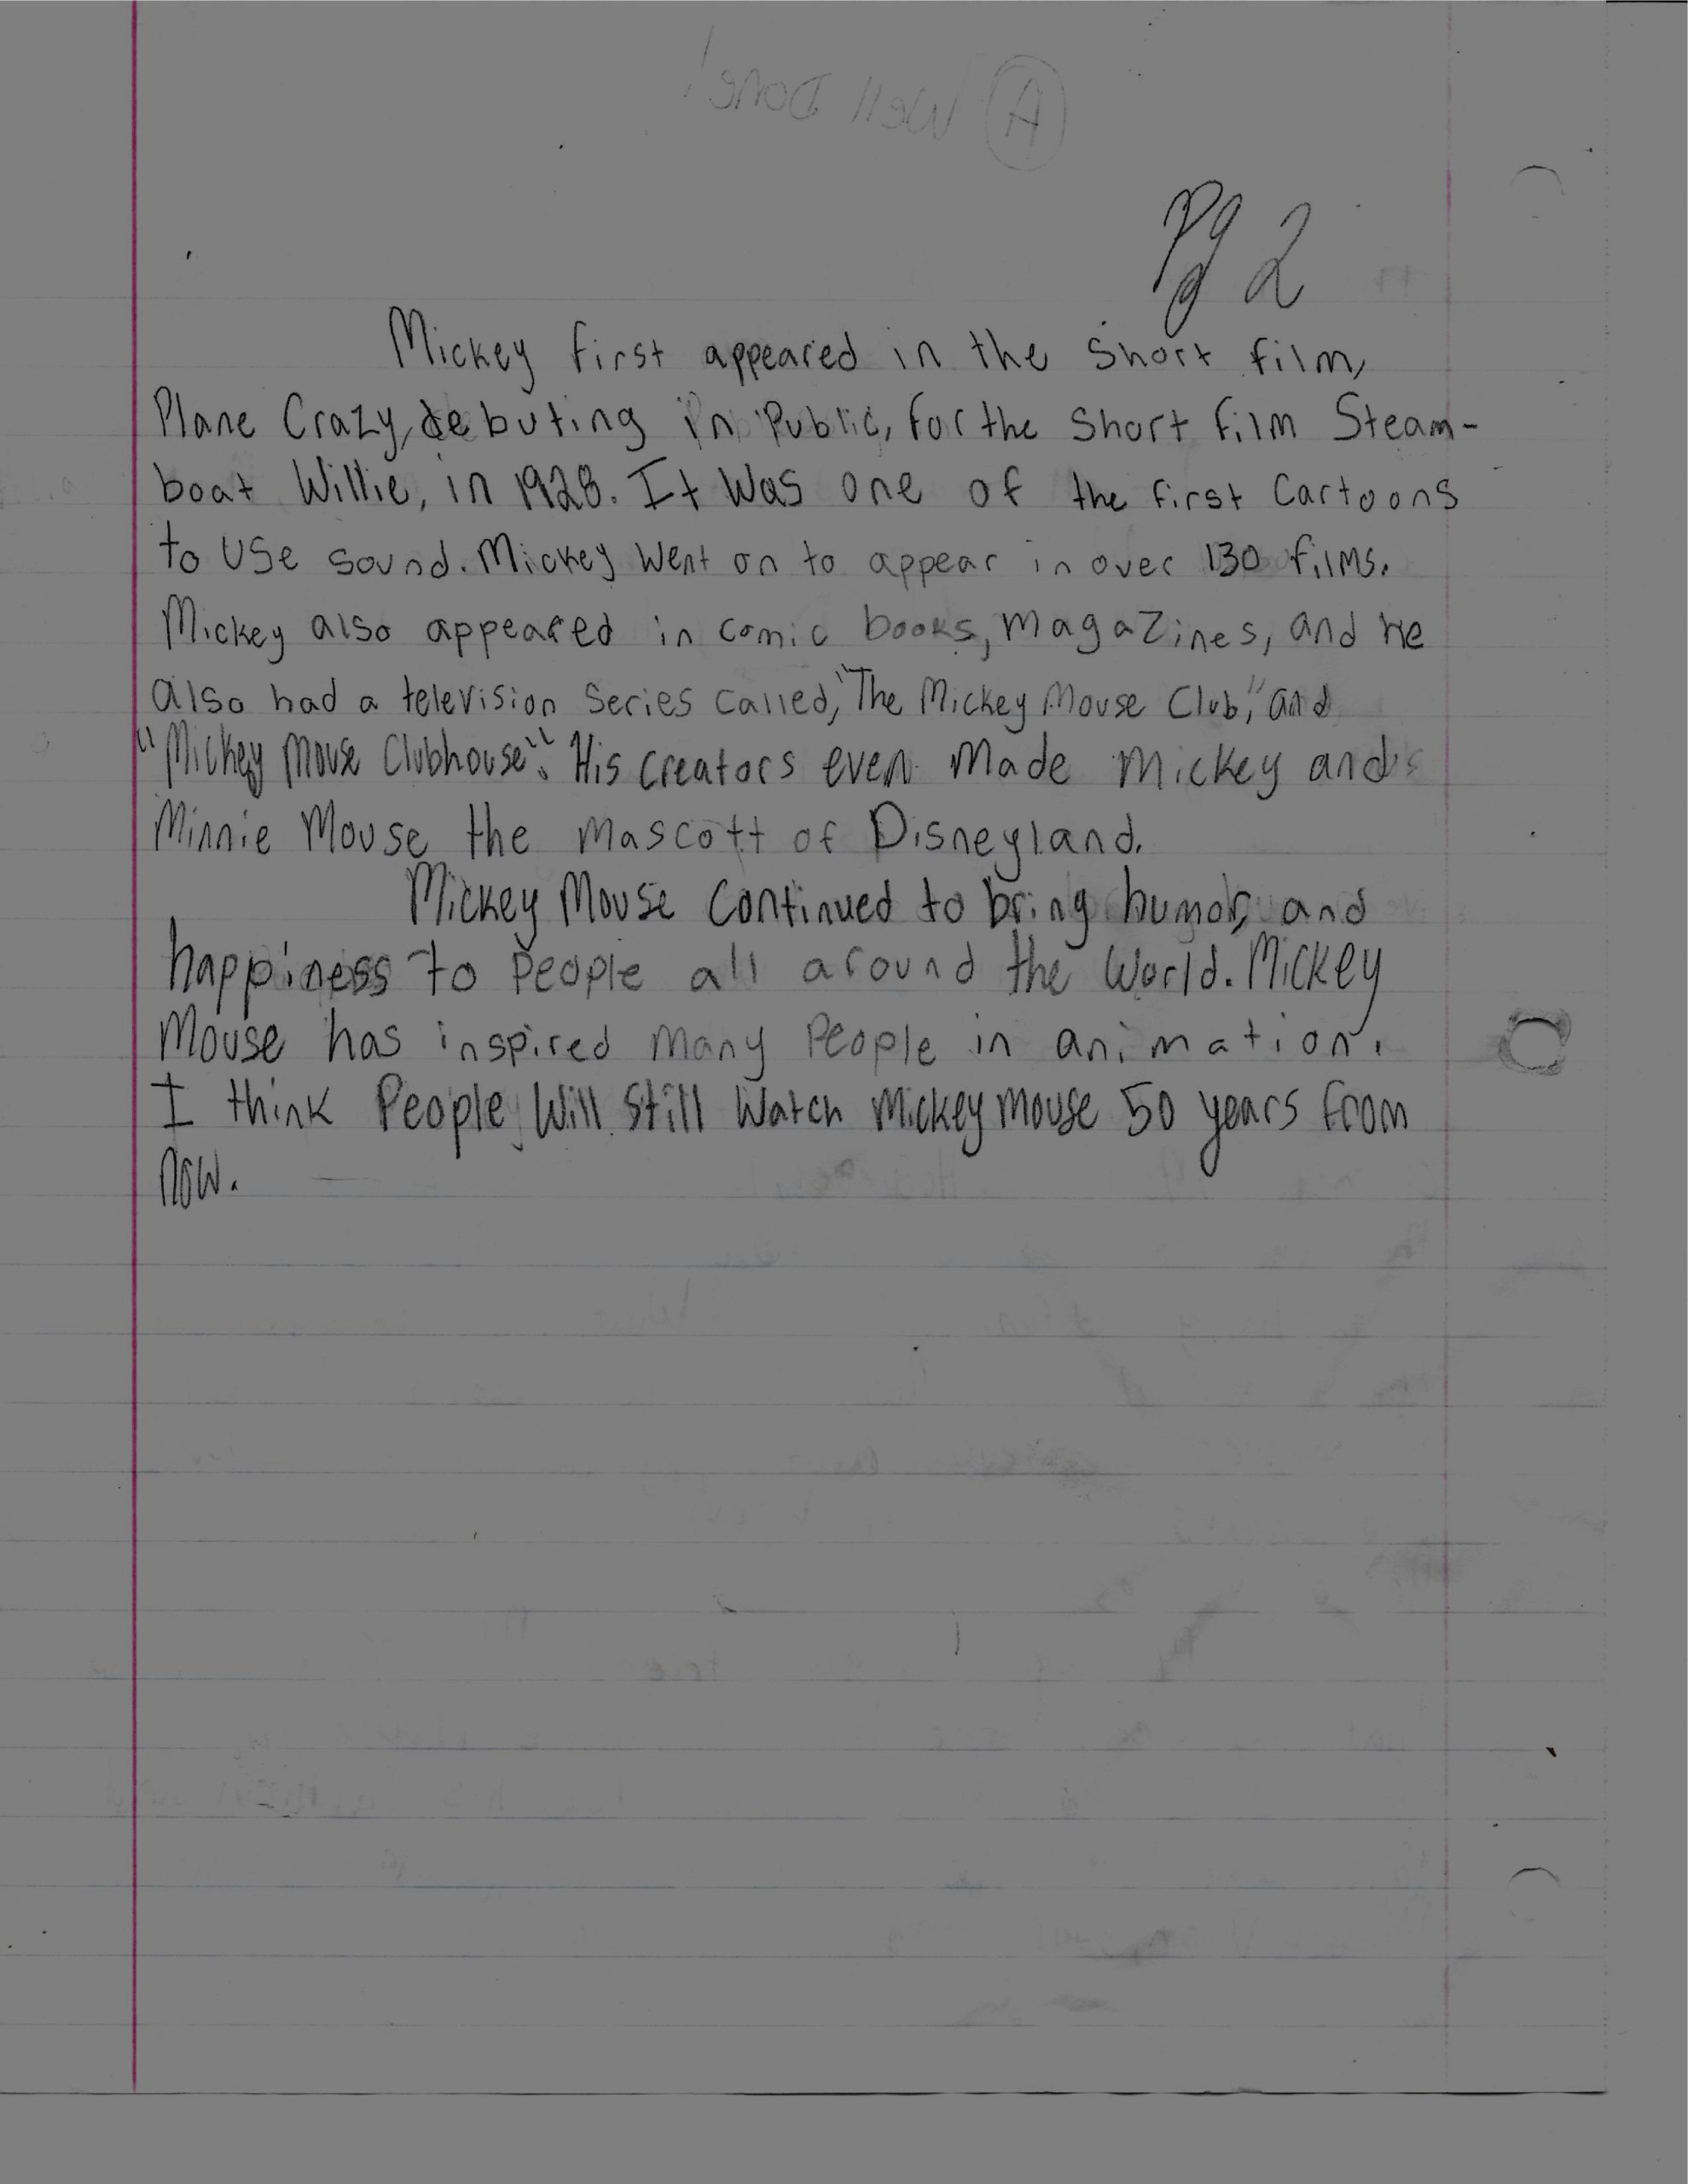 A Well Done!
Pg 2
Mickey first appeared in the short film,
Plane Crazy, debuting in Public, for the Short film Steam-
boat Willie, in 1928. It Was one of the first Cartoons
to use sound. Mickey went on to appear in over 130 films.
Mickey also appeared in comic books, magazines, and he
also had a television Series called, "The Mickey Mouse Club," and
"Mickey Mouse Clubhouse". His creators even Made Mickey and
Minnie Mouse the mascott of Disneyland.
Mickey Mouse Continued to bring humor, and
happiness to People all around the World. Mickey
Mouse has inspired many People in animation.
I think People Will Still Watch Mickey Mouse 50 years from
now.